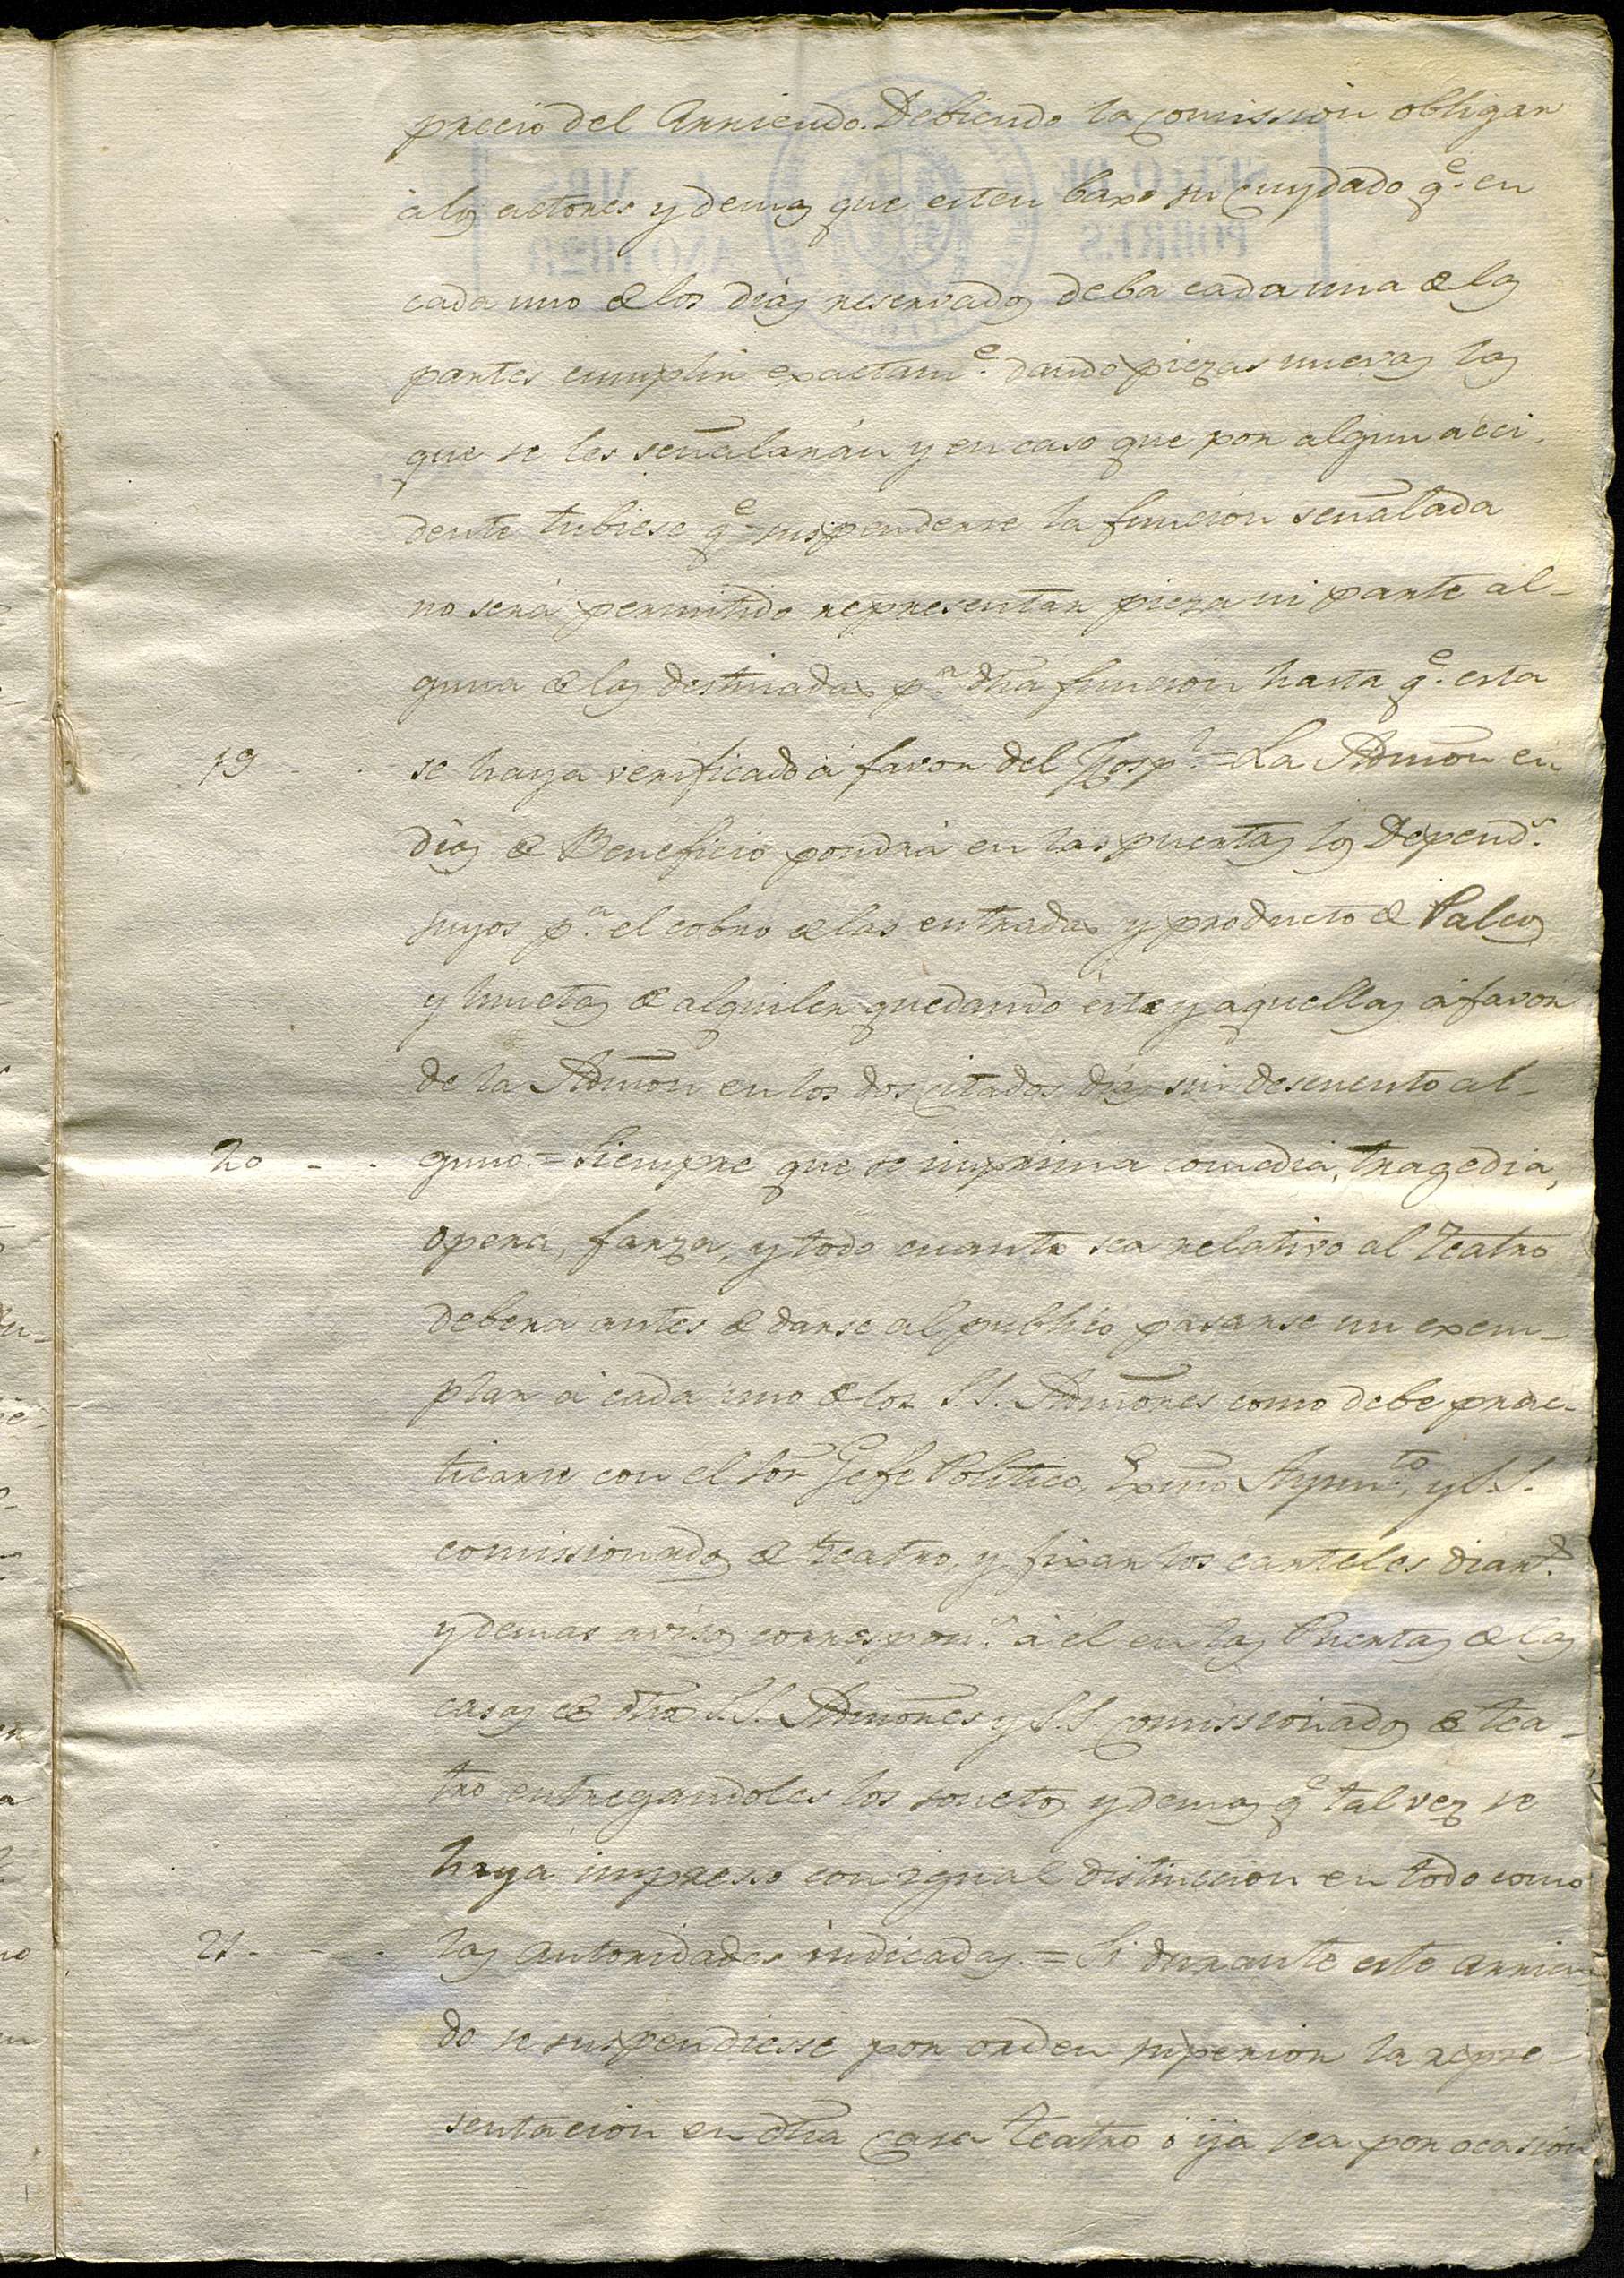 precio del Arriendo. Debiendo la comission obligar
à los actores y demas que esten baxo su cuydado q.e en
cada uno de los dias reservados deba cada una de las
partes cumplir exactam.e dando piezas nuevas las
que se les señalarán y en caso que por algun acci-
dente tubiese q.e suspenderse la funcion señalada
no será permitido representar pieza ni parte al-
guna de las destinadas p.a dha funcion hasta q.e esta
19 - - se haya verificado à favor del Hosp.l = La Admon en
dias de Beneficio pondrá en las puertas los Depend.s
suyos p.a el cobro de las entradas y producto de Palcos
y lunetas de alquiler quedando éste y aquellas à favor
de la Admon en los dos citados dias sin descuento al-
20 - - guno. = Siempre que se imprima comedia, tragedia,
opera, farza, y todo cuanto sea relativo al teatro
deberá antes de darse al publico pasarse un exem-
plar à cada uno de los S.S. Admores como debe prac-
ticarse con el Sor Gefe Politico, Exmo Ayunt.to, y S.S.
comissionados de teatro, y fixar los carteles diar.s
y demas avisos correspon.s à él en las Puertas de las
casas de dhos S.S. Admones y S.S. comissionados de tea-
tro entregandoles los sonetos y demas q.e tal vez se
haya impresso con igual distinccion en todo como
21 - - - las autoridades indicadas. = Si durante este arrien-
do se suspendiesse por orden superior la repre-
sentacion en dha Casa teatro ò ya sea por ocasion
SELLO DE
POBRES
4 MRS.
AÑO 1823